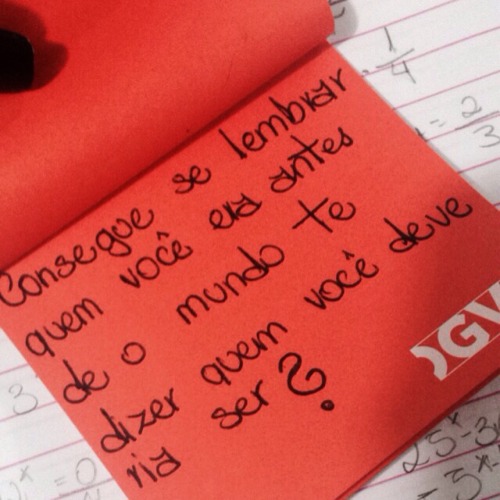 Consegue se lembrar
quem você era antes
de o mundo te
dizer quem você deve
ria ser?
1/4
= 2/3
3
x = 0
25x - 3